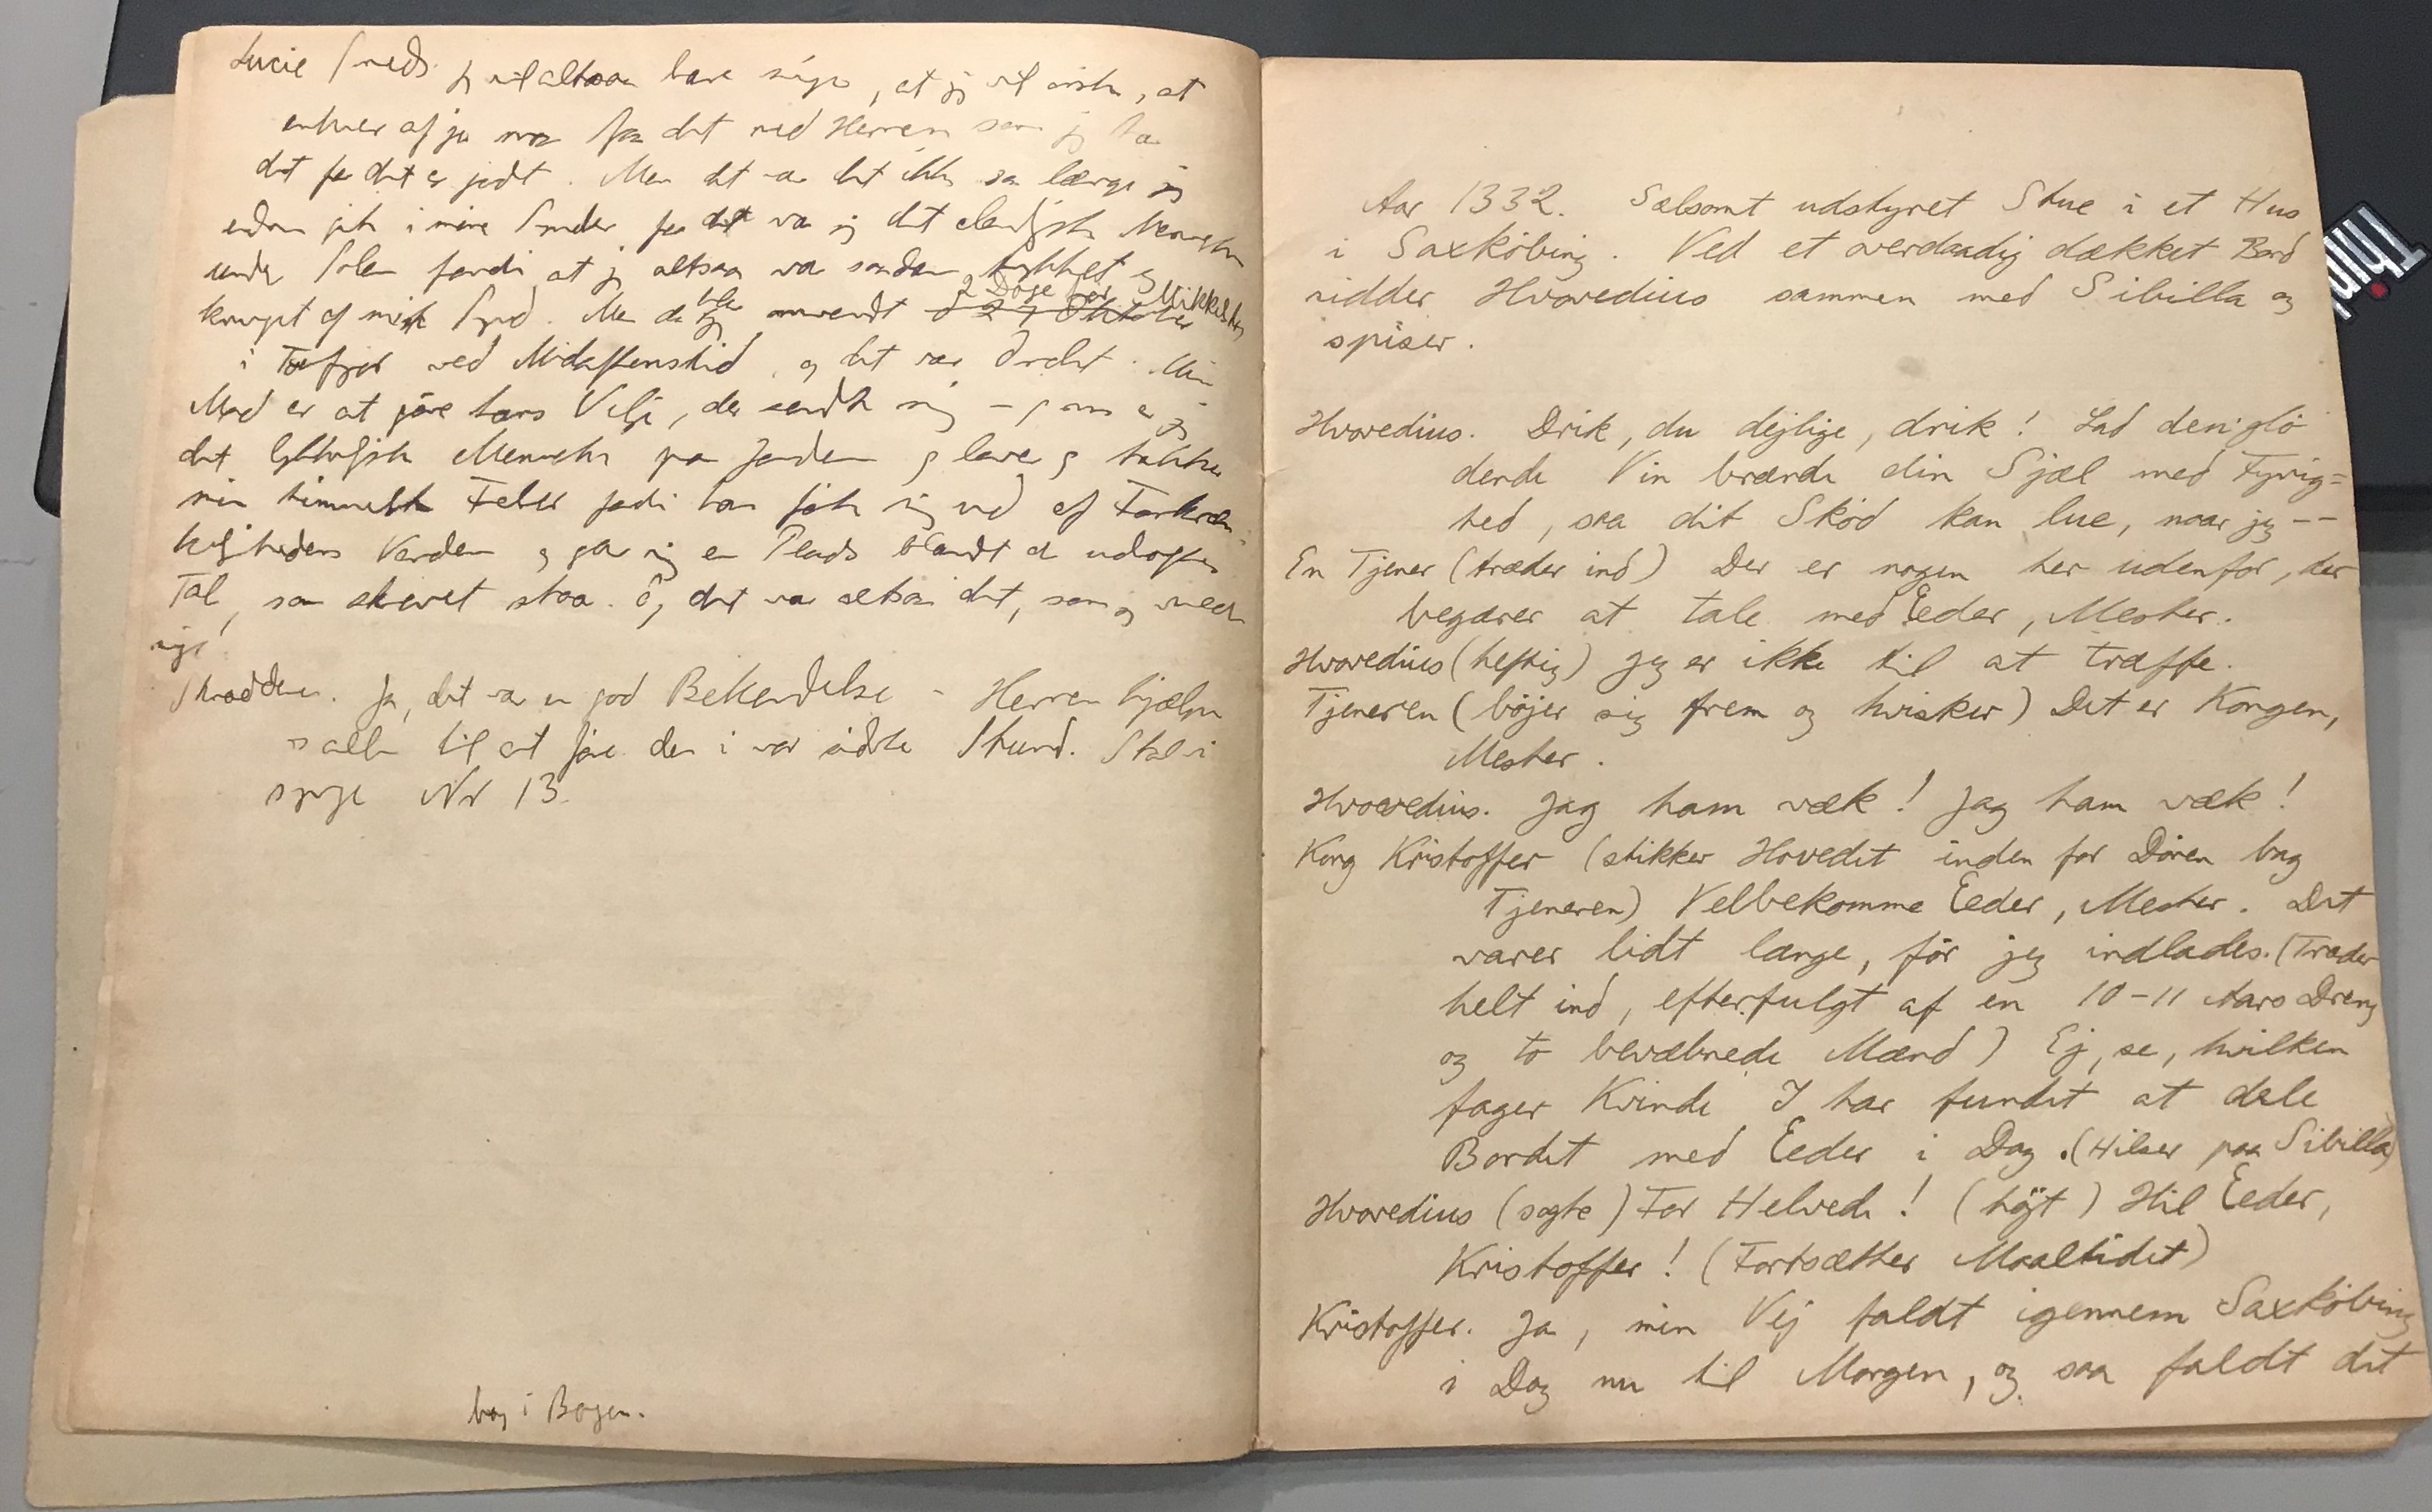 Lucie Smeds. jeg vil altsaa bare sige, at jeg vil önske, at
enhver af jer maa faa det med Herren som jeg ha
det for det er godt. Men det var det ikke saa længe jeg
endnu gik i mine Synder for da var jeg det elendigste Menneske
under Solen fordi at jeg altsaa var saadan tykket og
knuget af min Synd. Men da blev jeg omvendt d 27 Oktober 2 Dage før Mikkelsdag
i Tofjor ved Midaftenstid, og det var Ordet. Min
Mad er at göre hans Vilje, der sendte mig – og nu er jeg
det lykkeligste Menneske paa Jorden og lover og takker
min himmelske Fader fordi han fik mig ud af Forkræn-
kelighedens Verden og gav mig en Plads blandt de udvalgtes
Tal, som skrevet staa. Og det var altsaa det, som jeg vilde
sige
Skrædderen. Ja, det var en god Bekendelse – Herren hjælpe
os alle til at göre den i vor sidste Stund. Skal vi
synge Nr 13.
bag i Bogen.
Aar 1332. Selsomt udstyret Stue i et Hus
i Saxköbing. Ved et overdaadig dækket Bord
sidder Hvovedius sammen med Sibilla og
spiser.
Hvovedius. Drik, du dejlige, drik! Lad den glö-
dende Vin brænde din Sjæl med Fyrig=
hed, saa dit Sköd kan lue, naar jeg --
En Tjener (træder ind) Der er nogen her udenfor, der
begærer at tale med Eeder, Mester.
Hvovedius (heftig) Jeg er ikke til at træffe.
Tjeneren (böjer sig frem og hvisker) Det er Kongen,
Mester.
Hvovedius. Jag ham væk! Jag ham væk!
Kong Kristoffer (stikker Hovedet inden for Dören bag
Tjeneren) Velbekomme Eeder, Mester. Det
varer lidt længe, för jeg indlades. (Træder
helt ind, efterfulgt af en 10-11 Aars Dreng
og to bevæbnede Mænd) Ej, se, hvilken
fager Kvinde I har fundet at dele
Bordet med Eeder i Dag. (Hilser paa Sibilla)
Hvovedius (sagte) For Helvede! (höjt) Hil Eeder,
Kristoffer! (Fortsætter Maaltidet)
Kristoffer. Ja, min Vej faldt igennem Saxköbing
i Dag nu til Morgen, og saa faldt det
Thin